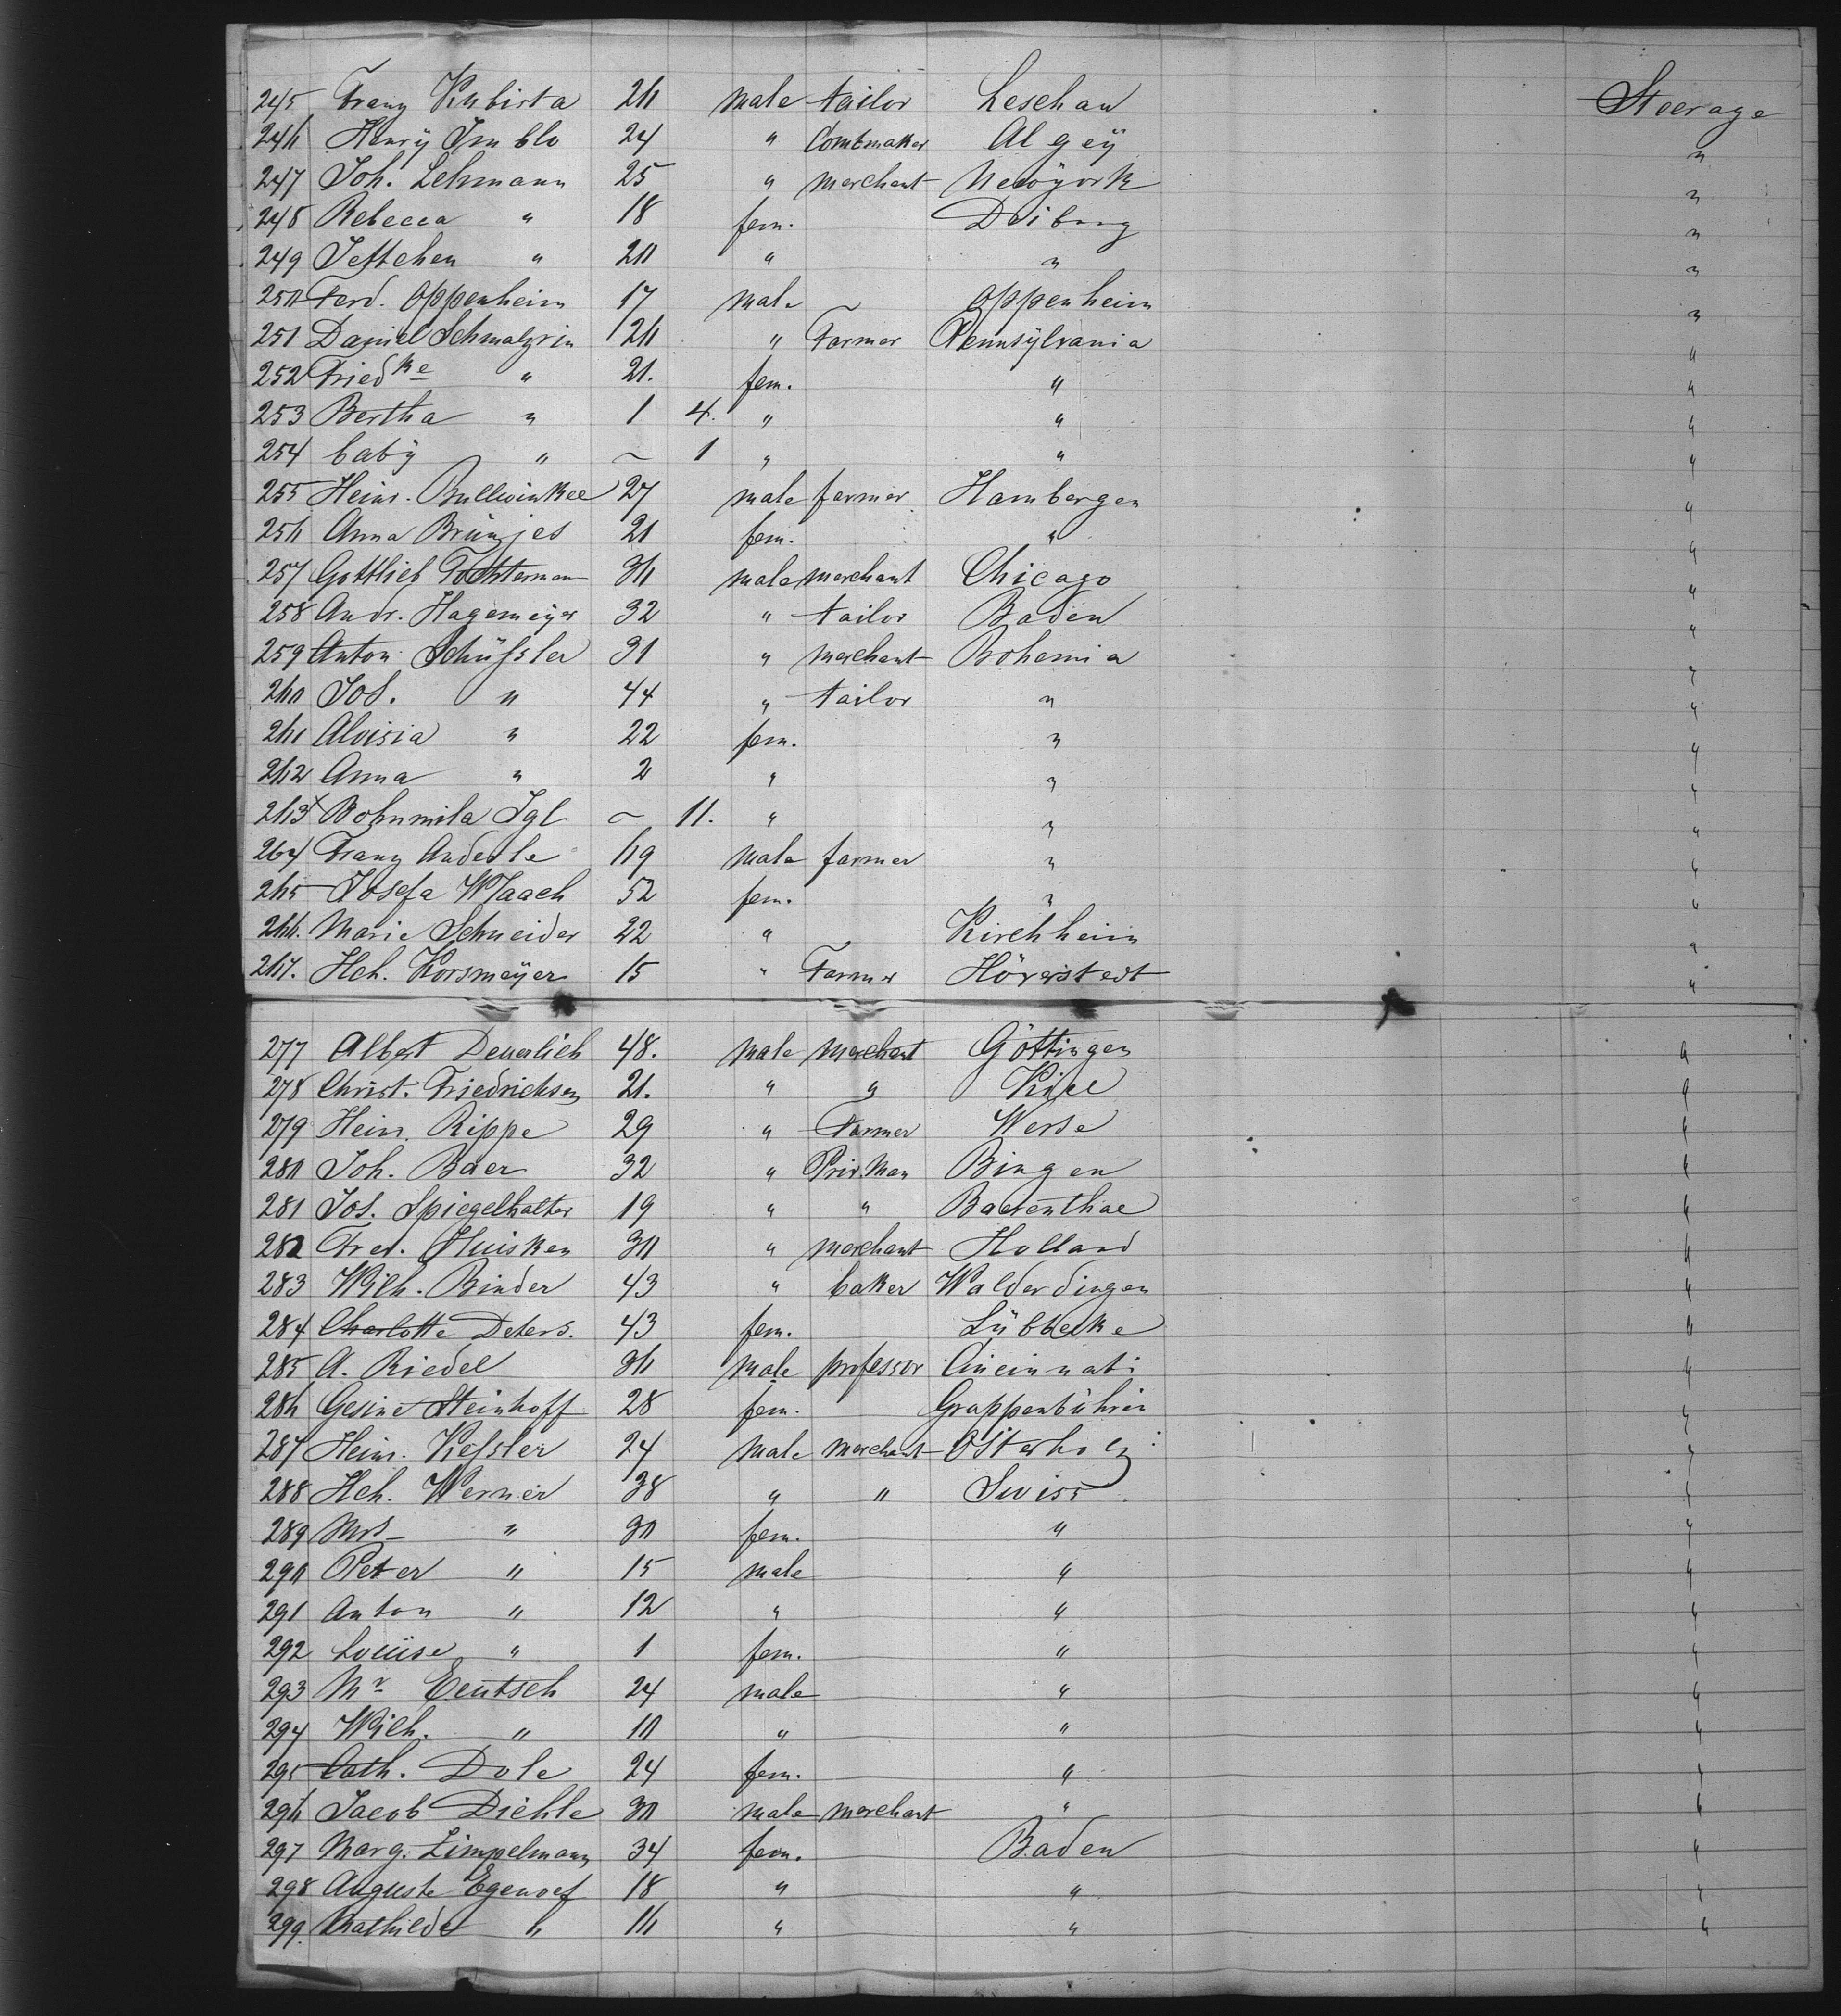 245 Franz Kubista 26 male tailor Leschau Steerage
246 Henry Imblo 24 " Combmaker Algey "
247 Joh. Lehmann 25 " merchant Newyork "
248 Rebecca " 18 fem. Deiburg "
249 Jettchen " 20 " " "
250 Ferd. Oppenheim 17 male Oppenheim "
251 Daniel Schmalzrin 26 " Farmer Pennsylvania "
252 Friedke " 21. fem. " "
253 Bertha " 1 4. " " "
254 baby " ~ 1 " " "
255 Heinr. Bullwinkel 27 male farmer Hambergen "
256 Anna Brünjes 21 fem. " "
257 Gottlieb Tochterman 36 male merchant Chicago "
258 Andr. Hagemeyer 32 " tailor Baden "
259 Anton Schüssler 31 " merchant Bohemia "
260 Jos. " 44 " tailor " "
261 Aloisia " 22 fem. " "
262 Anna " 2 " " "
263 Bohumila Igl ~ 11. " " "
264 Franz Anderle 69 male farmer " "
265 Josefa Wlaach 52 fem. " "
266. Marie Schneider 22 " Kirchheim "
267. Hch. Korsmeyer 15 " Farmer Höverstedt "
277 Albert Deuerlich 48. male merchant Göttingen "
278 Christ. Friedrichsen 21. " " Kiel "
279 Hein. Rippe 29 " Farmer Werse "
280 Joh. Baer 32 " Priv. Man Bingen "
281 Jos. Spiegelhalter 19 " " "
282 Fred. Huisken 30 " merchant Holland "
283 Wilh. Binder 43 " baker Walderdingen "
284 Charlotte Deters. 43 fem. Lübbecke "
285 A. Riedel 36 male professor Cincinnati "
286 Gesine Steinhoff 28 fem. Gruppenbühren "
287 Heinr. Kessler 24 male merchant Osterholz "
288 Hch. Werner 38 " " Swiss "
289 Mrs " 30 fem. " "
290 Peter " 15 male " "
291 Anton " 12 " " "
292 Louise " 1 fem. " "
293 Mr. Eeutsch 24 male " "
294 Wilh. " 10 " " "
295 Cath. Dole 24 fem. " "
296 Jacob Diehle 30 male merchant " "
297 Marg. Limpelmann 34 fem. Baden "
298 Auguste Egenoef 18 " " "
299. Mathilde " 16 " " "